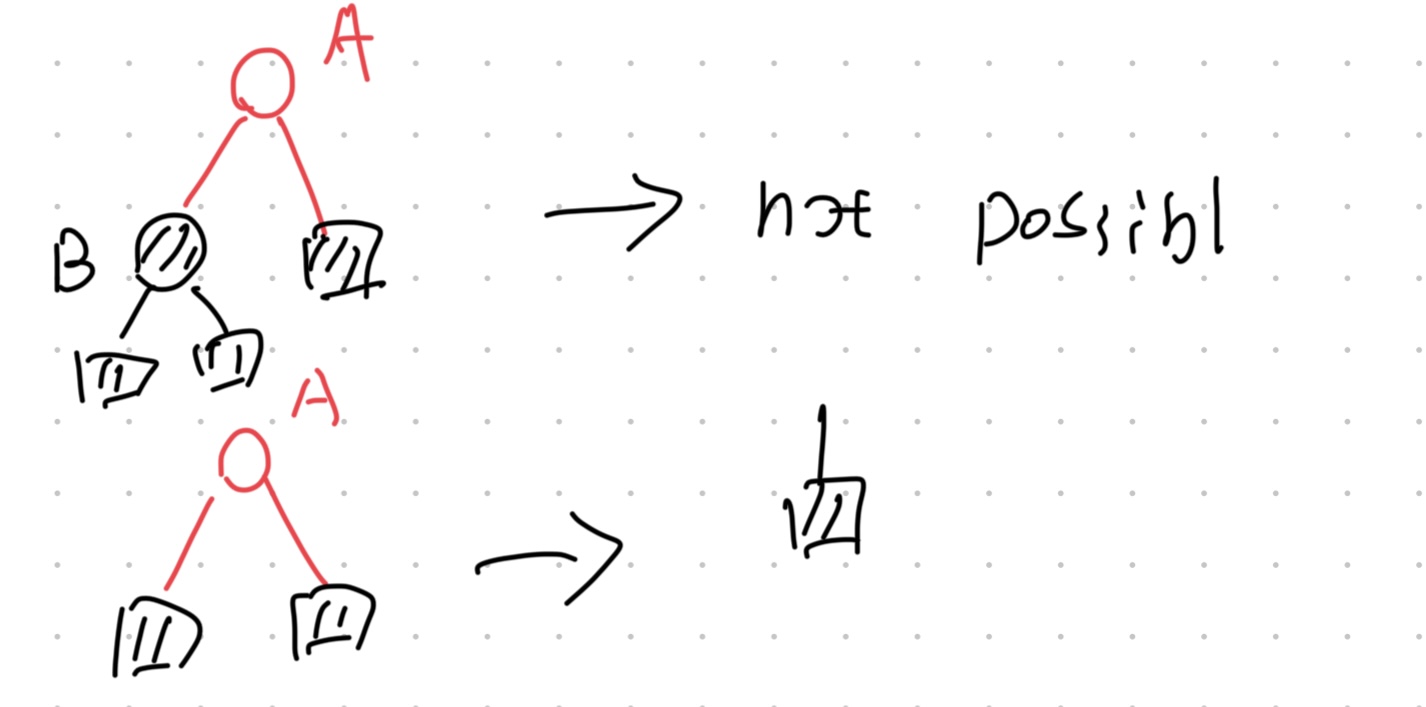 A
B
not possibl
A